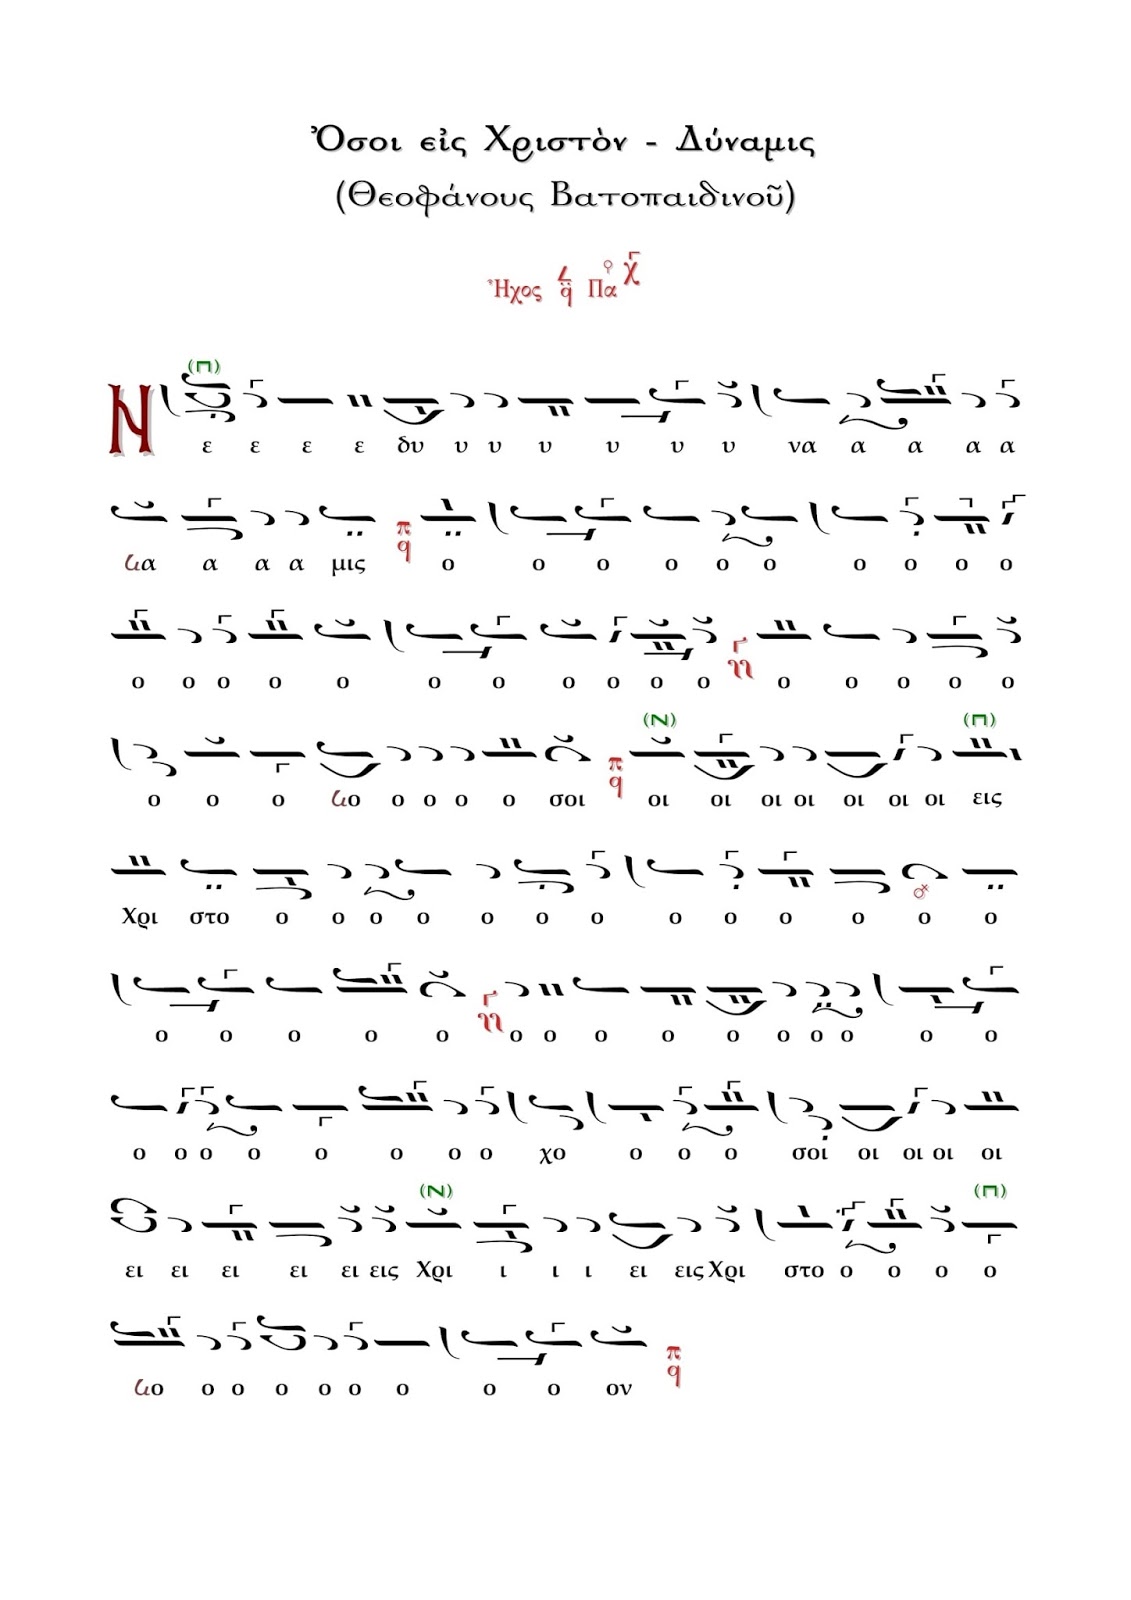 Ὅσοι εἰς Χριστὸν - Δύναμις
(Θεοφάνους Βατοπαιδινοῦ)
Ἦχος π̈q Πα
(Π)
Ν ε ε ε ε δυ υ υ υ υ υ υ να α α α α
α α α α μις πq ο ο ο ο ο ο ο ο ο ο
ο ο ο ο ο ο ο ο ο ο ο ο ο ο ο ο
(Ν) (Π)
ο ο ο ο ο ο ο ο σοι πq οι οι οι οι οι οι οι εις
Χρι στο ο ο ο ο ο ο ο ο ο ο ο ο ο
ο ο ο ο ο ο ο ο ο ο ο ο ο ο ο
ο ο ο ο ο ο ο ο χο ο ο ο σοι οι οι οι οι
(Ν) (Π)
ει ει ει ει ει εις Χρι ι ι ι ει εις Χρι στο ο ο ο ο
ο ο ο ο ο ο ο ο ο ον πq